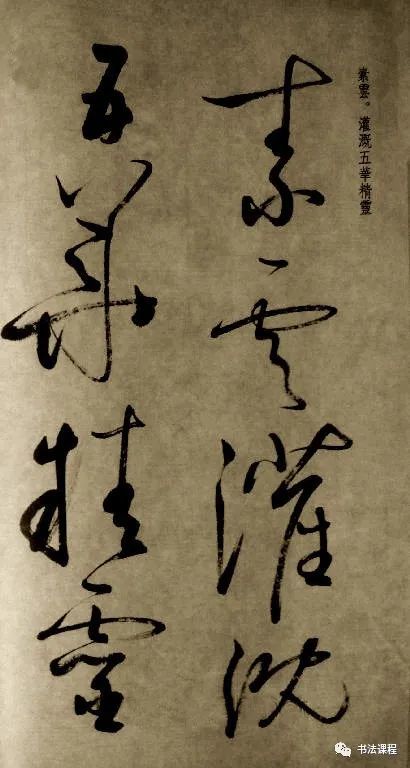 素雲。灌溉五華精靈
素雲灌溉
五華精靈
书法课程